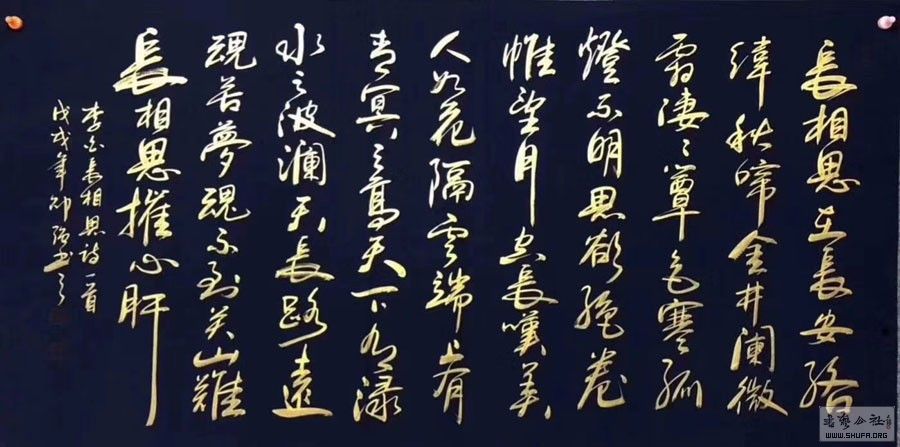 長相思在長安絡
緯秋啼金井闌微
霜淒〻簟色寒孤
燈不明思欲絕卷
帷望月空長嘆美
人如花隔雲端上有
青冥之高天下有淥
水之波瀾天長路遠
魂苦夢魂不到关山難
長相思摧心肝
李白長相思詩一首
戊戌年 书之
WWW.SHUFA.ORG